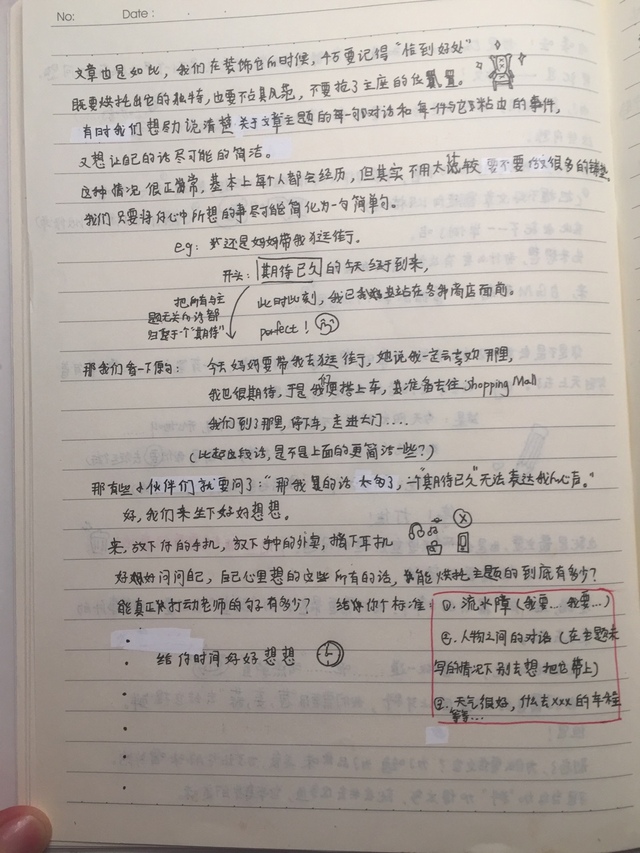 No: Date:
文章也是如此，我们在装饰它的时候，千万要记得“恰到好处”
既要烘托出它的独特，也要不失其风范，不要抢了主座的位置置。
有时我们想尽力说清楚关于文章主题的每一句对话和每一件与它粘边的事件，
又想让自己的话尽可能的简洁。
这种情况很正常，基本上每个人都会经历，但其实不用太比较要不要做很多的铺垫
我们只要将你心中所想的事尽可能简化为一句简单句。
eg：还是妈妈带我去逛街。
开头：期待已久的今天终于到来，
把所有与主题无关的话都归基于一个“期待”
此时此刻，我已我妈妈站在各种商店面前。
perfect！
那我们看一下原句：今天妈妈要带我去逛街，她说我一定会喜欢那里，
我也很期待，于是我们便搭上车，准备去往Shopping Mall
我们到了那里，停下车，走进大门....
（比起这段话，是不是上面的更简洁一些？）
那有些小伙伴们就要问了：“那我要的话太多了，一个“期待已久”无法表达我的心声。”
好，我们来坐下好好想想。
来，放下你的手机，放下手中的外卖，摘下耳机
好好问问自己，自己心里想的这些所有的话，能烘托主题的到底有多少？
能真正打动老师的句子有多少？ 给你个标准：
①. 流水障（我要... 我要...）
②. 人物之间的对话（在主题未写的情况下别去想把它带上）
③. 天气很好，什么去xxx的车程等等...
给你时间好好想想